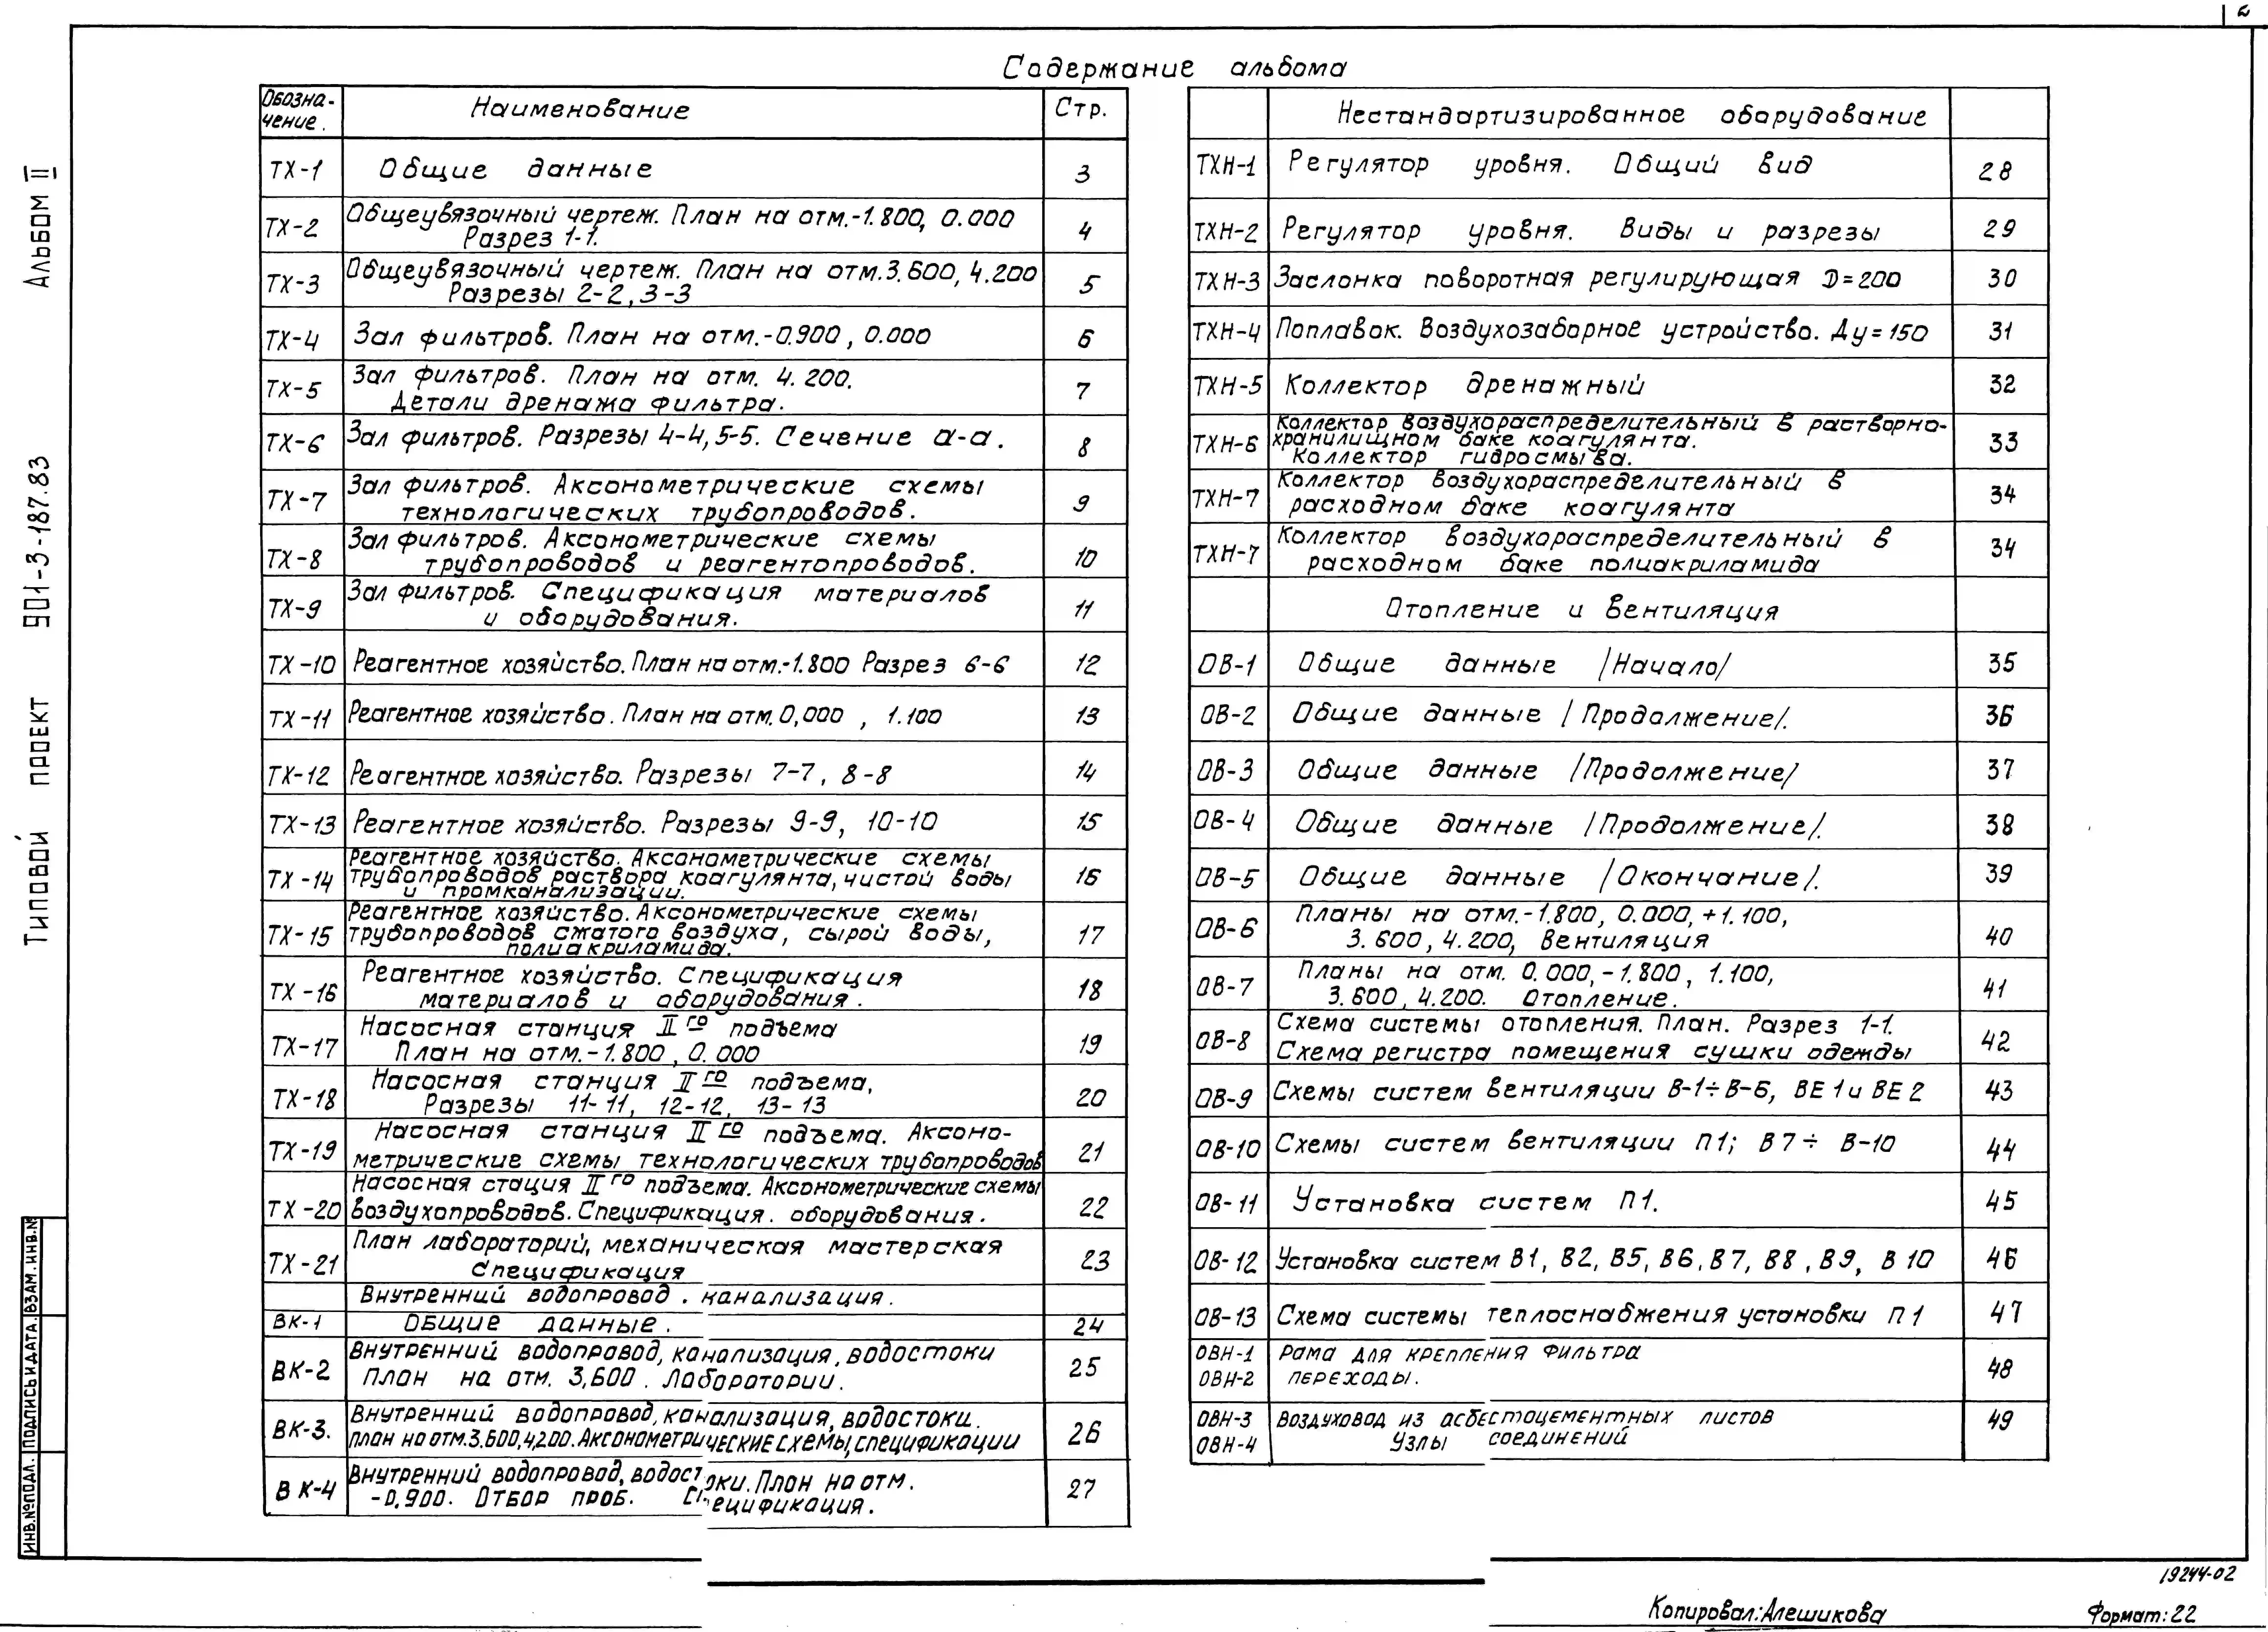 2
Содержание альбома
Обозна-
чение.
Наименование
Стр.
ТХ-1 Общие данные 3
ТХ-2 Общеувязочный чертеж. План на отм.-1.800, 0.000
Разрез 1-1. 4
ТХ-3 Общеувязочный чертеж. План на отм.3.600, 4.200
Разрезы 2-2, 3-3 5
ТХ-4 Зал фильтров. План на отм.-0.900, 0.000 6
ТХ-5 Зал фильтров. План на отм. 4.200.
Детали дренажа фильтра. 7
ТХ-6 Зал фильтров. Разрезы 4-4, 5-5. Сечение а-а. 8
ТХ-7 Зал фильтров. Аксонометрические схемы
технологических трубопроводов. 9
ТХ-8 Зал фильтров. Аксонометрические схемы
трубопроводов и реагентопроводов. 10
ТХ-9 Зал фильтров. Спецификация материалов
и оборудования. 11
ТХ-10 Реагентное хозяйство. План на отм.-1.800 Разрез 6-6 12
ТХ-11 Реагентное хозяйство. План на отм. 0,000 , 1.100 13
ТХ-12 Реагентное хозяйство. Разрезы 7-7, 8-8 14
ТХ-13 Реагентное хозяйство. Разрезы 9-9, 10-10 15
ТХ-14 Реагентное хозяйство. Аксонометрические схемы
трубопроводов раствора коагулянта, чистой воды
и промканализации. 16
ТХ-15 Реагентное хозяйство. Аксонометрические схемы
трубопроводов сжатого воздуха, сырой воды,
полиакриламида. 17
ТХ-16 Реагентное хозяйство. Спецификация
материалов и оборудования. 18
ТХ-17 Насосная станция II го подъема
План на отм.-1.800, 0.000 19
ТХ-18 Насосная станция II го подъема,
Разрезы 11-11, 12-12, 13-13 20
ТХ-19 Насосная станция II го подъема. Аксоно-
метрические схемы технологических трубопроводов 21
ТХ-20 Насосная стация II го подъема. Аксонометрические схемы
воздухопроводов. Спецификация. оборудования. 22
ТХ-21 План лабораторий, механическая мастерская
Спецификация 23
Внутренний водопровод. канализация.
ВК-1 Общие данные. 24
ВК-2 Внутренний водопровод, канализация, водостоки
План на отм. 3,600. Лаборатории. 25
ВК-3. Внутренний водопровод, канализация, водостоки.
план на отм.3.600,4,200. Аксонометрические схемы, спецификации 26
ВК-4 Внутренний водопровод, водостоки. План на отм.
-0.900. Отбор проб. Спецификация. 27
Нестандартизированное оборудование
ТХН-1 Регулятор уровня. Общий вид 28
ТХН-2 Регулятор уровня. Виды и разрезы 29
ТХН-3 Заслонка поворотная регулирующая D=200 30
ТХН-4 Поплавок. Воздухозаборное устройство. Ду=150 31
ТХН-5 Коллектор дренажный 32
ТХН-6 Коллектор воздухораспределительный в растворно-
хранилищном баке коагулянта.
Коллектор гидросмыва. 33
ТХН-7 Коллектор воздухораспределительный в
расходном баке коагулянта 34
ТХН-7 Коллектор воздухораспределительный в
расходном баке полиакриламида 34
Отопление и вентиляция
ОВ-1 Общие данные /Начало/ 35
ОВ-2 Общие данные /Продолжение/. 36
ОВ-3 Общие данные /Продолжение/ 37
ОВ-4 Общие данные /Продолжение/. 38
ОВ-5 Общие данные /Окончание/. 39
ОВ-6 Планы на отм.-1.800, 0.000, +1.100,
3.600, 4.200, Вентиляция 40
ОВ-7 Планы на отм. 0.000, -1.800, 1.100,
3.600, 4.200. Отопление. 41
ОВ-8 Схема системы отопления. План. Разрез 1-1.
Схема регистра помещения сушки одежды 42
ОВ-9 Схемы систем вентиляции В-1÷В-6, ВЕ1 и ВЕ2 43
ОВ-10 Схемы систем вентиляции П1; В7÷ В-10 44
ОВ-11 Установка систем П1. 45
ОВ-12 Установка систем В1, В2, В5, В6, В7, В8, В9, В10 46
ОВ-13 Схема системы теплоснабжения установки П1 47
ОВН-1 Рама для крепления фильтра
ОВН-2 переходы. 48
ОВН-3 Воздуховод из асбестоцементных листов 49
ОВН-4 Узлы соединений
Альбом II
Типовой проект 901-3-187.83
ИНВ.№ПОДЛ. ПОДПИСЬ И ДАТА. ВЗАМ.ИНВ.№
19244-02
Копировал: Алешикова
Формат: 22